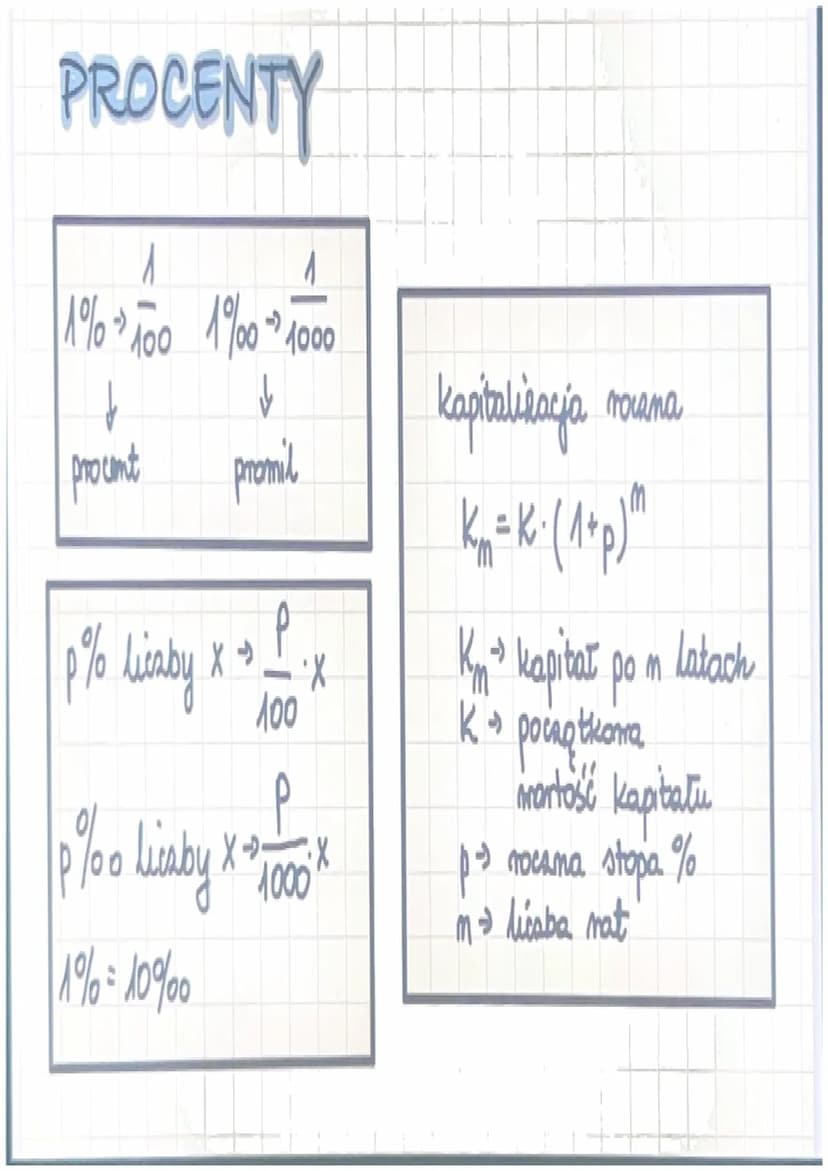 PROCENTY
1% → 1/100 1‰ → 1/1000
↓ ↓
procent promil
p% liczby x → p/100 · x
p‰ liczby x → p/1000 · x
1% = 10‰
kapitalizacja roczna
Kn = K · (1+p)^n
Kn → kapitał po n latach
K → początkowa
wartość kapitału
p → roczna stopa %
n → liczba rat